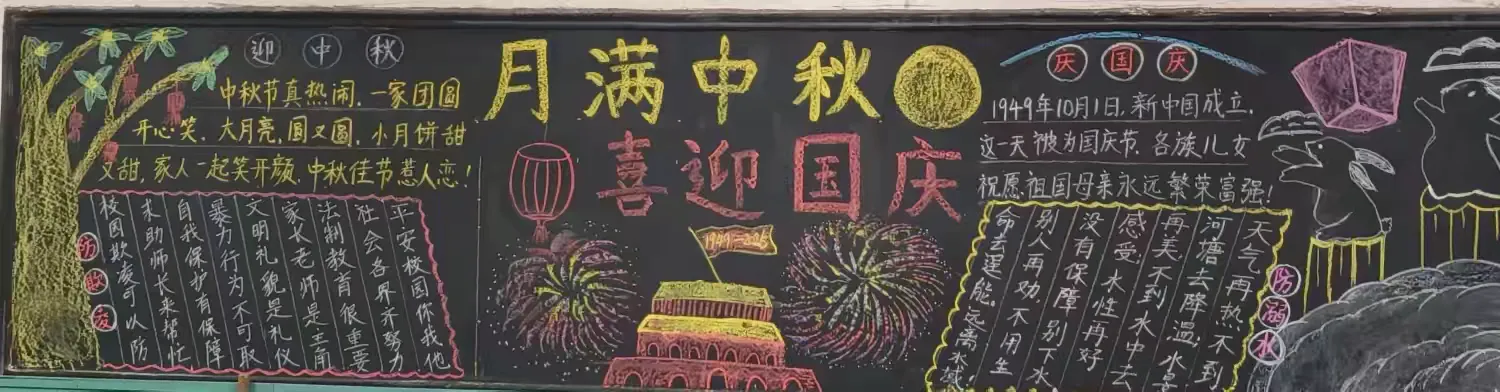 迎中秋
中秋节真热闹、一家团圆
开心笑、大月亮,圆又圆、小月饼甜
又甜,家人一起笑开颜.中秋佳节惹人恋!
防欺凌
平安校园你我他
社会各界齐努力
法制教育很重要
家长老师是正面
文明礼貌是礼仪
暴力行为不可取
自我保护有保障
求助师长来帮忙
校园欺凌可以防
月满中秋
喜迎国庆
1949—2025
庆国庆
1949年10月1日,新中国成立,
这一天被为国庆节,各族儿女
祝愿祖国母亲永远繁荣富强!
防溺水
天气再热不到
河塘去降温,水景
再美,不到水中去
感受,水性再好
没有保障别下水,
别人再劝,不用生
命去逞能,远离水域,